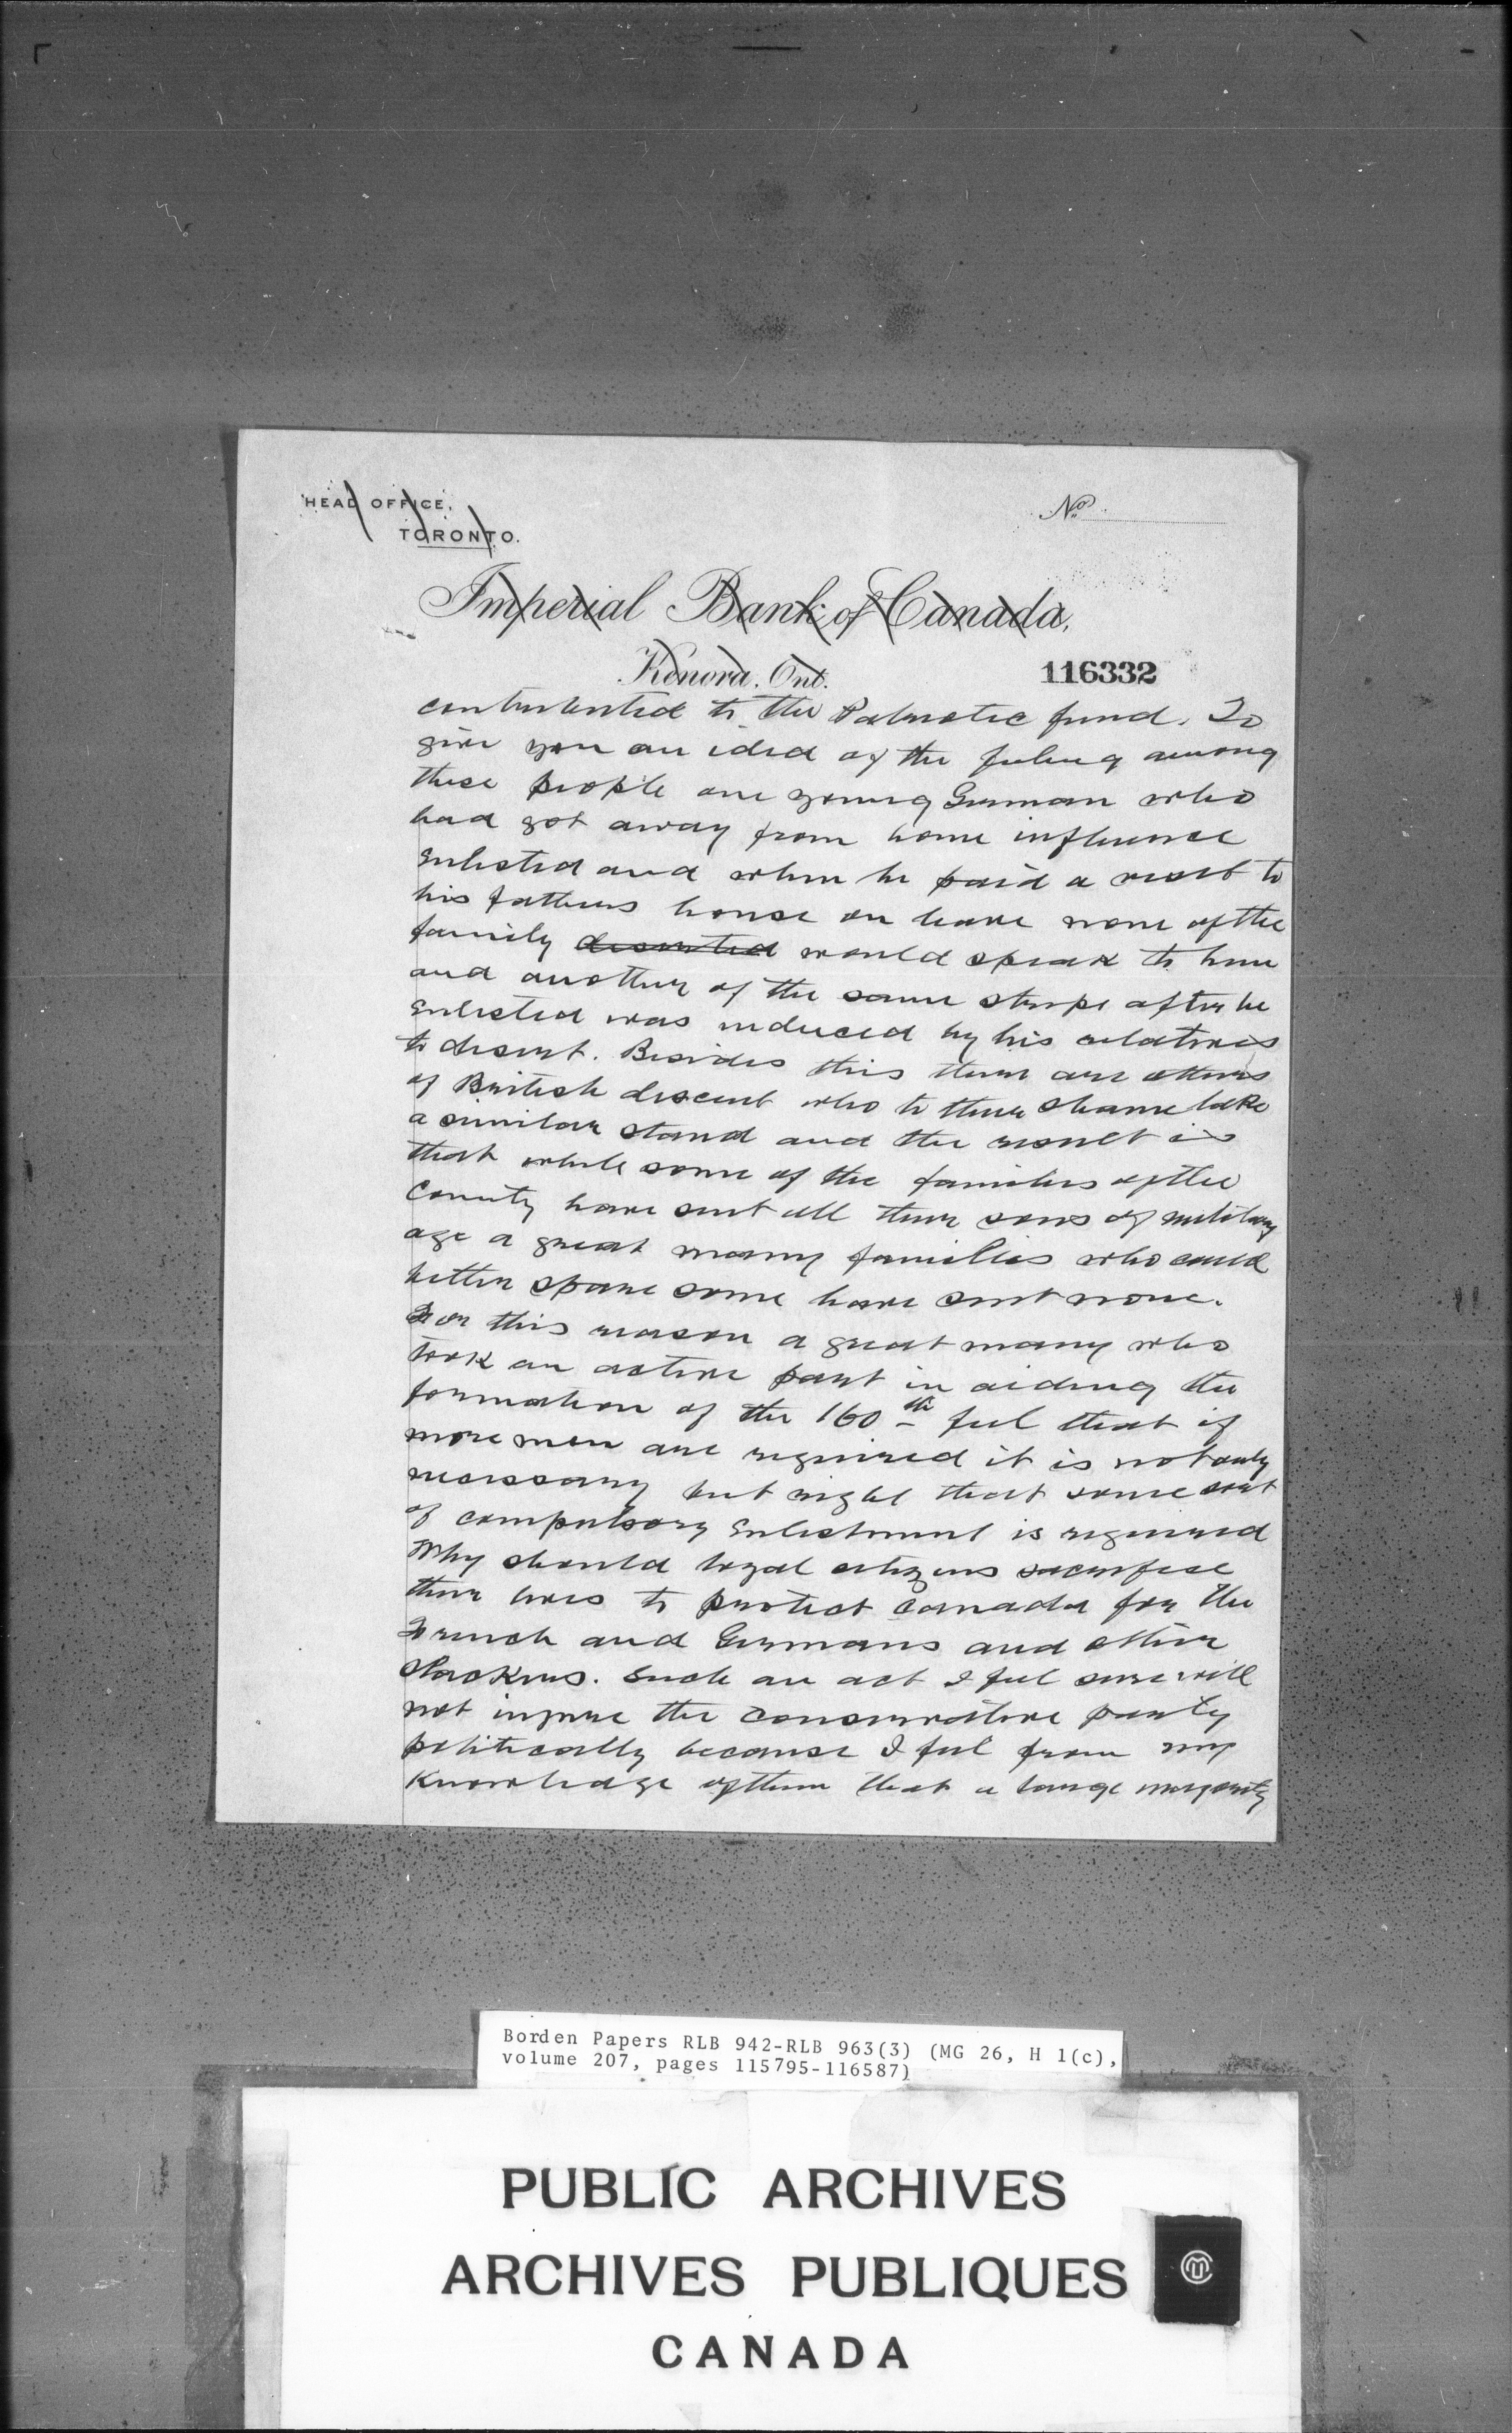 HEAD OFFICE,
TORONTO.
No.
Imperial Bank of Canada,
Kenora, Ont.
116332
contributed to the Patriotic fund. To
give you an idea of the feeling among
these people one young German who
had got away from home influence
enlisted and when he paid a visit to
his fathers house on leave none of the
family deserted would speak to him
and another of the same stripe after he
enlisted was induced by his relatives
to desert. Besides this there are others
of British descent who to their shame take
a similar stand and the result is
that while some of the families of the
County have sent all their sons of military
age a great many families who could
better spare some have sent none.
For this reason a great many who
took an active part in aiding the
formation of the 160th feel that if
more men are required it is not only
necessary but right that some sort
of compulsory enlistment is required
Why should loyal citizens sacrifice
their lives to protect Canada for the
French and Germans and other
slackers. Such an act I feel sure will
not injure the Conservative party
politically because I feel from my
knowledge of them that a large majority
Borden Papers RLB 942-RLB 963(3) (MG 26, H 1(c),
volume 207, pages 115795-116587)
PUBLIC ARCHIVES
ARCHIVES PUBLIQUES
CANADA